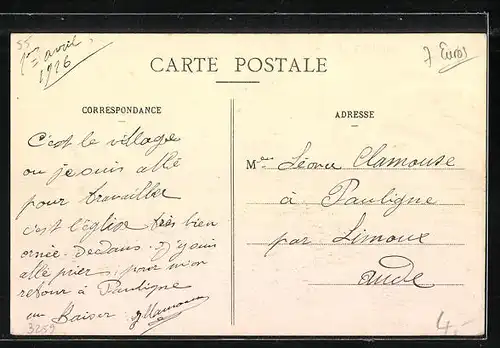 55
1er avril
1916
7 Euros
CARTE POSTALE
CORRESPONDANCE
ADRESSE
C'est le village
ou je suis allé
pour travailler
c'est l'église très bien
ornée. Dedans. J'y suis
allé prier, pour mon
retour à Pauligne
un Baiser
3259
Melle Léonie Clamouse
à Pauligne
par Limoux
Aude
4,-